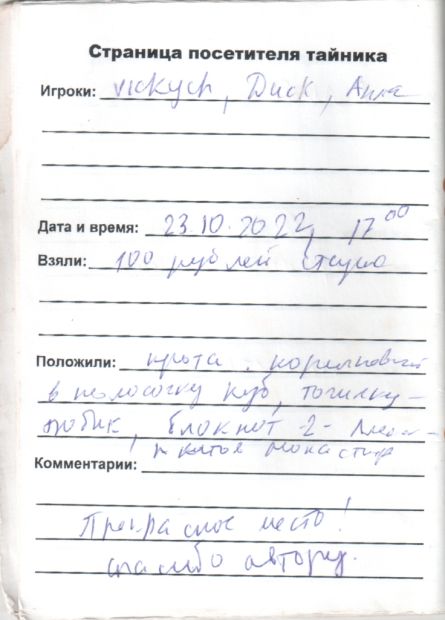 Страница посетителя тайника
Игроки: vickych, Диск, Анна
Дата и время: 23.10.2022, 17 00
Взяли: 100 рублей
Положили: крота, коричневый
в полосочку куб, точилку-
кубик, блокнот -2-
монастыр
Комментарии:
Прекрасное место!
спасибо автору.